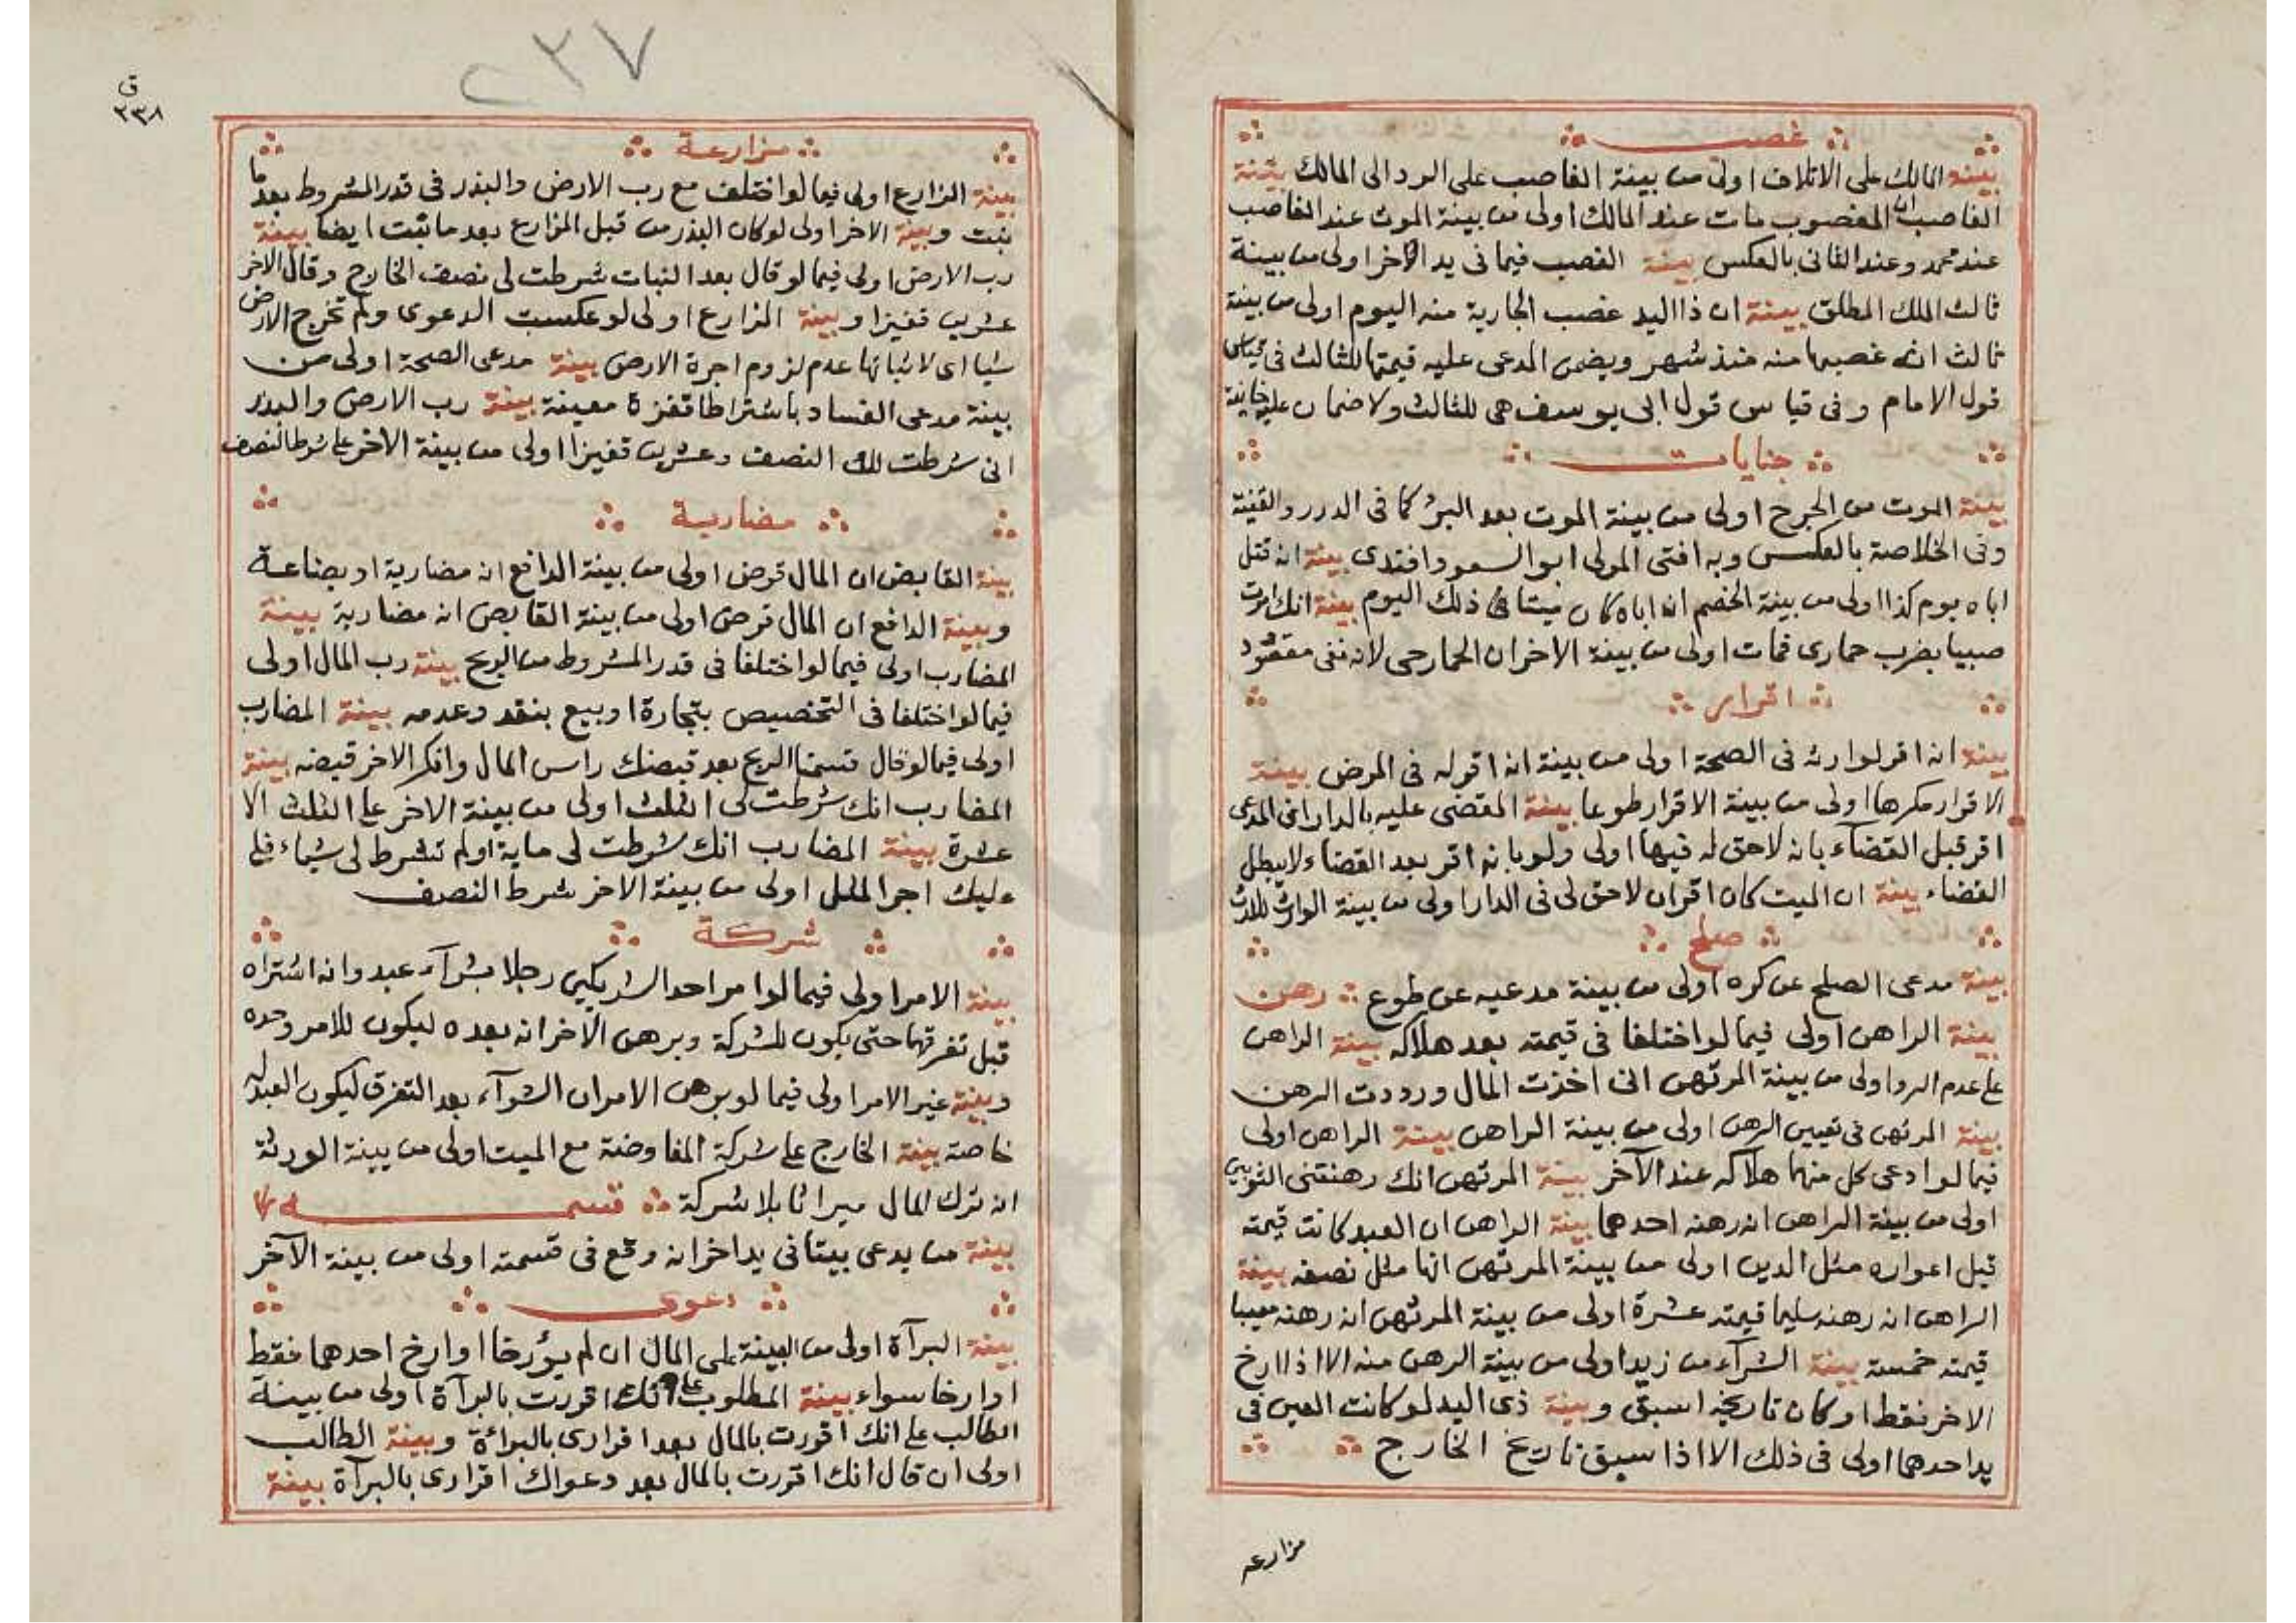 غصب
بينة المالك على الاتلاف اولى من بينة الغاصب على الرد الى المالك بينة
الغاصب ان المغصوب مات عند المالك اولى من بينة الموت عند الغاصب
عند محمد وعند الثانى بالعكس بينة الغصب فيما فى يد الآخر اولى من بينة
ثالث الملك المطلق بينة ان ذا اليد غصب الجارية منه اليوم اولى من بينة
ثالث انه غصبها منه منذ شهر ويضمن المدعى عليه قيمتها للثالث فى قياس
قول الامام وفى قياس قول ابى يوسف هى للثالث ولا ضمان عليه خانية
جنايات
بينة الموت من الجرح اولى من بينة الموت بعد البرؤ كما فى الدرر والقنية
وفى الخلاصة بالعكس وبه افتى المولى ابو السعود افندى بينة انه قتل
اباه يوم كذا اولى من بينة الخصم ان اباه كان ميتا فى ذلك اليوم بينة انك امرت
صبيا بضرب حمارى فمات اولى من بينة الاخر ان الحمار حى لانه نفى مقصود
اقرار
بينة انه اقر لوارثه فى الصحة اولى من بينة انه اقر له فى المرض بينة
الاقرار مكرها اولى من بينة الاقرار طوعا بينة المقضى عليه بالدار ان المدعى
اقر قبل القضآء بانه لاحق له فيها اولى ولو بانه اقر بعد القضاء لا يبطل
القضاء بينة ان الميت كان اقر ان لاحق لى فى الدار اولى من بينة الوارث للارث
صلح
بينة مدعى الصلح عن كره اولى من بينة مدعيه عن طوع رهن
بينة الراهن اولى فيما لو اختلفا فى قيمته بعد هلاكه بينة الراهن
على عدم الرد اولى من بينة المرتهن انى اخذت المال ورددت الرهن
بينة المرتهن فى تعيين الرهن اولى من بينة الراهن بينة الراهن اولى
فيما لو ادعى كل منهما هلاكه عند الآخر بينة المرتهن انك رهنتنى الثوبين
اولى من بينة الراهن انه رهنه احدهما بينة الراهن ان العبد كانت قيمته
قبل اعواره مثل الدين اولى من بينة المرتهن انها مثل نصفه بينة
الراهن انه رهنه سليما قيمته عشرة اولى من بينة المرتهن انه رهنه معيبا
قيمته خمسة بينة الشرآء من زيد اولى من بينة الرهن منه الا اذا ارخ
الاخر فقط او كان تاريخه اسبق وبينة ذى اليد لو كانت العين فى
يد احدهما اولى فى ذلك الا اذا سبق تاريخ الخارج
مزارعه
٢٣٧
ق
٢٣٨
مزارعة
بينة المزارع اولى فيما لو اختلف مع رب الارض والبذر فى قدر المشروط بعد ما
نبت وبينة الاخر اولى لو كان البذر من قبل المزارع بعد ما نبت ايضا بينة
رب الارض اولى فيما لو قال بعد النبات شرطت لى نصف الخارج وقال الاخر
عشرين قفيزا وبينة المزارع اولى لو عكست الدعوى ولم تخرج الارض
شيا اى لاثباتها عدم لزوم اجرة الارض بينة مدعى الصحة اولى من
بينة مدعى الفساد باشتراط اقفزة معينة بينة رب الارض والبذر
انى شرطت لك النصف وعشرين قفيزا اولى من بينة الاخر على شرط النصف
مضاربة
بينة القابض ان المال قرض اولى من بينة الدافع انه مضاربة او بضاعة
وبينة الدافع ان المال قرض اولى من بينة القابض انه مضاربة بينة
المضارب اولى فيما لو اختلفا فى قدر المشروط من الربح بينة رب المال اولى
فيما لو اختلفا فى التخصيص بتجارة او بيع بنقد وعدمه بينة المضارب
اولى فيما لو قال قسمنا الربح بعد قبضك راس المال وانكر الاخر قبضه بينة
المضارب انك شرطت لى الثلث اولى من بينة الاخر على الثلث الا
عشرة بينة المضارب انك شرطت لى ماية او لم تشرط لى شياء فلى
عليك اجر المثل اولى من بينة الاخر شرط النصف
شركة
بينة الامر اولى فيما لو امر احد الشريكين رجلا بشرآء عبد وانه اشتراه
قبل تفرقهما حتى يكون للشركة وبرهن الآخر انه بعده ليكون للامر وحده
وبينة غير الامر اولى فيما لو برهن الامر ان الشرآء بعد التفرق ليكون العبد له
خاصة بينة الخارج على شركة المفاوضة مع الميت اولى من بينة الورثة
انه ترك المال ميراثا بلا شركة قسمه
بينة من يدعى بيتا فى يد اخر انه وقع فى قسمته اولى من بينة الآخر
دعوى
بينة البرآة اولى من البينة على المال ان لم يؤرخا او ارخ احدهما فقط
او ارخا سواء بينة المطلوب على انك اقررت بالبرآة اولى من بينة
الطالب على انك اقررت بالمال بعد اقرارى بالبرائة وبينة الطالب
اولى ان قال انك اقررت بالمال بعد دعواك اقرارى بالبرآة بينة